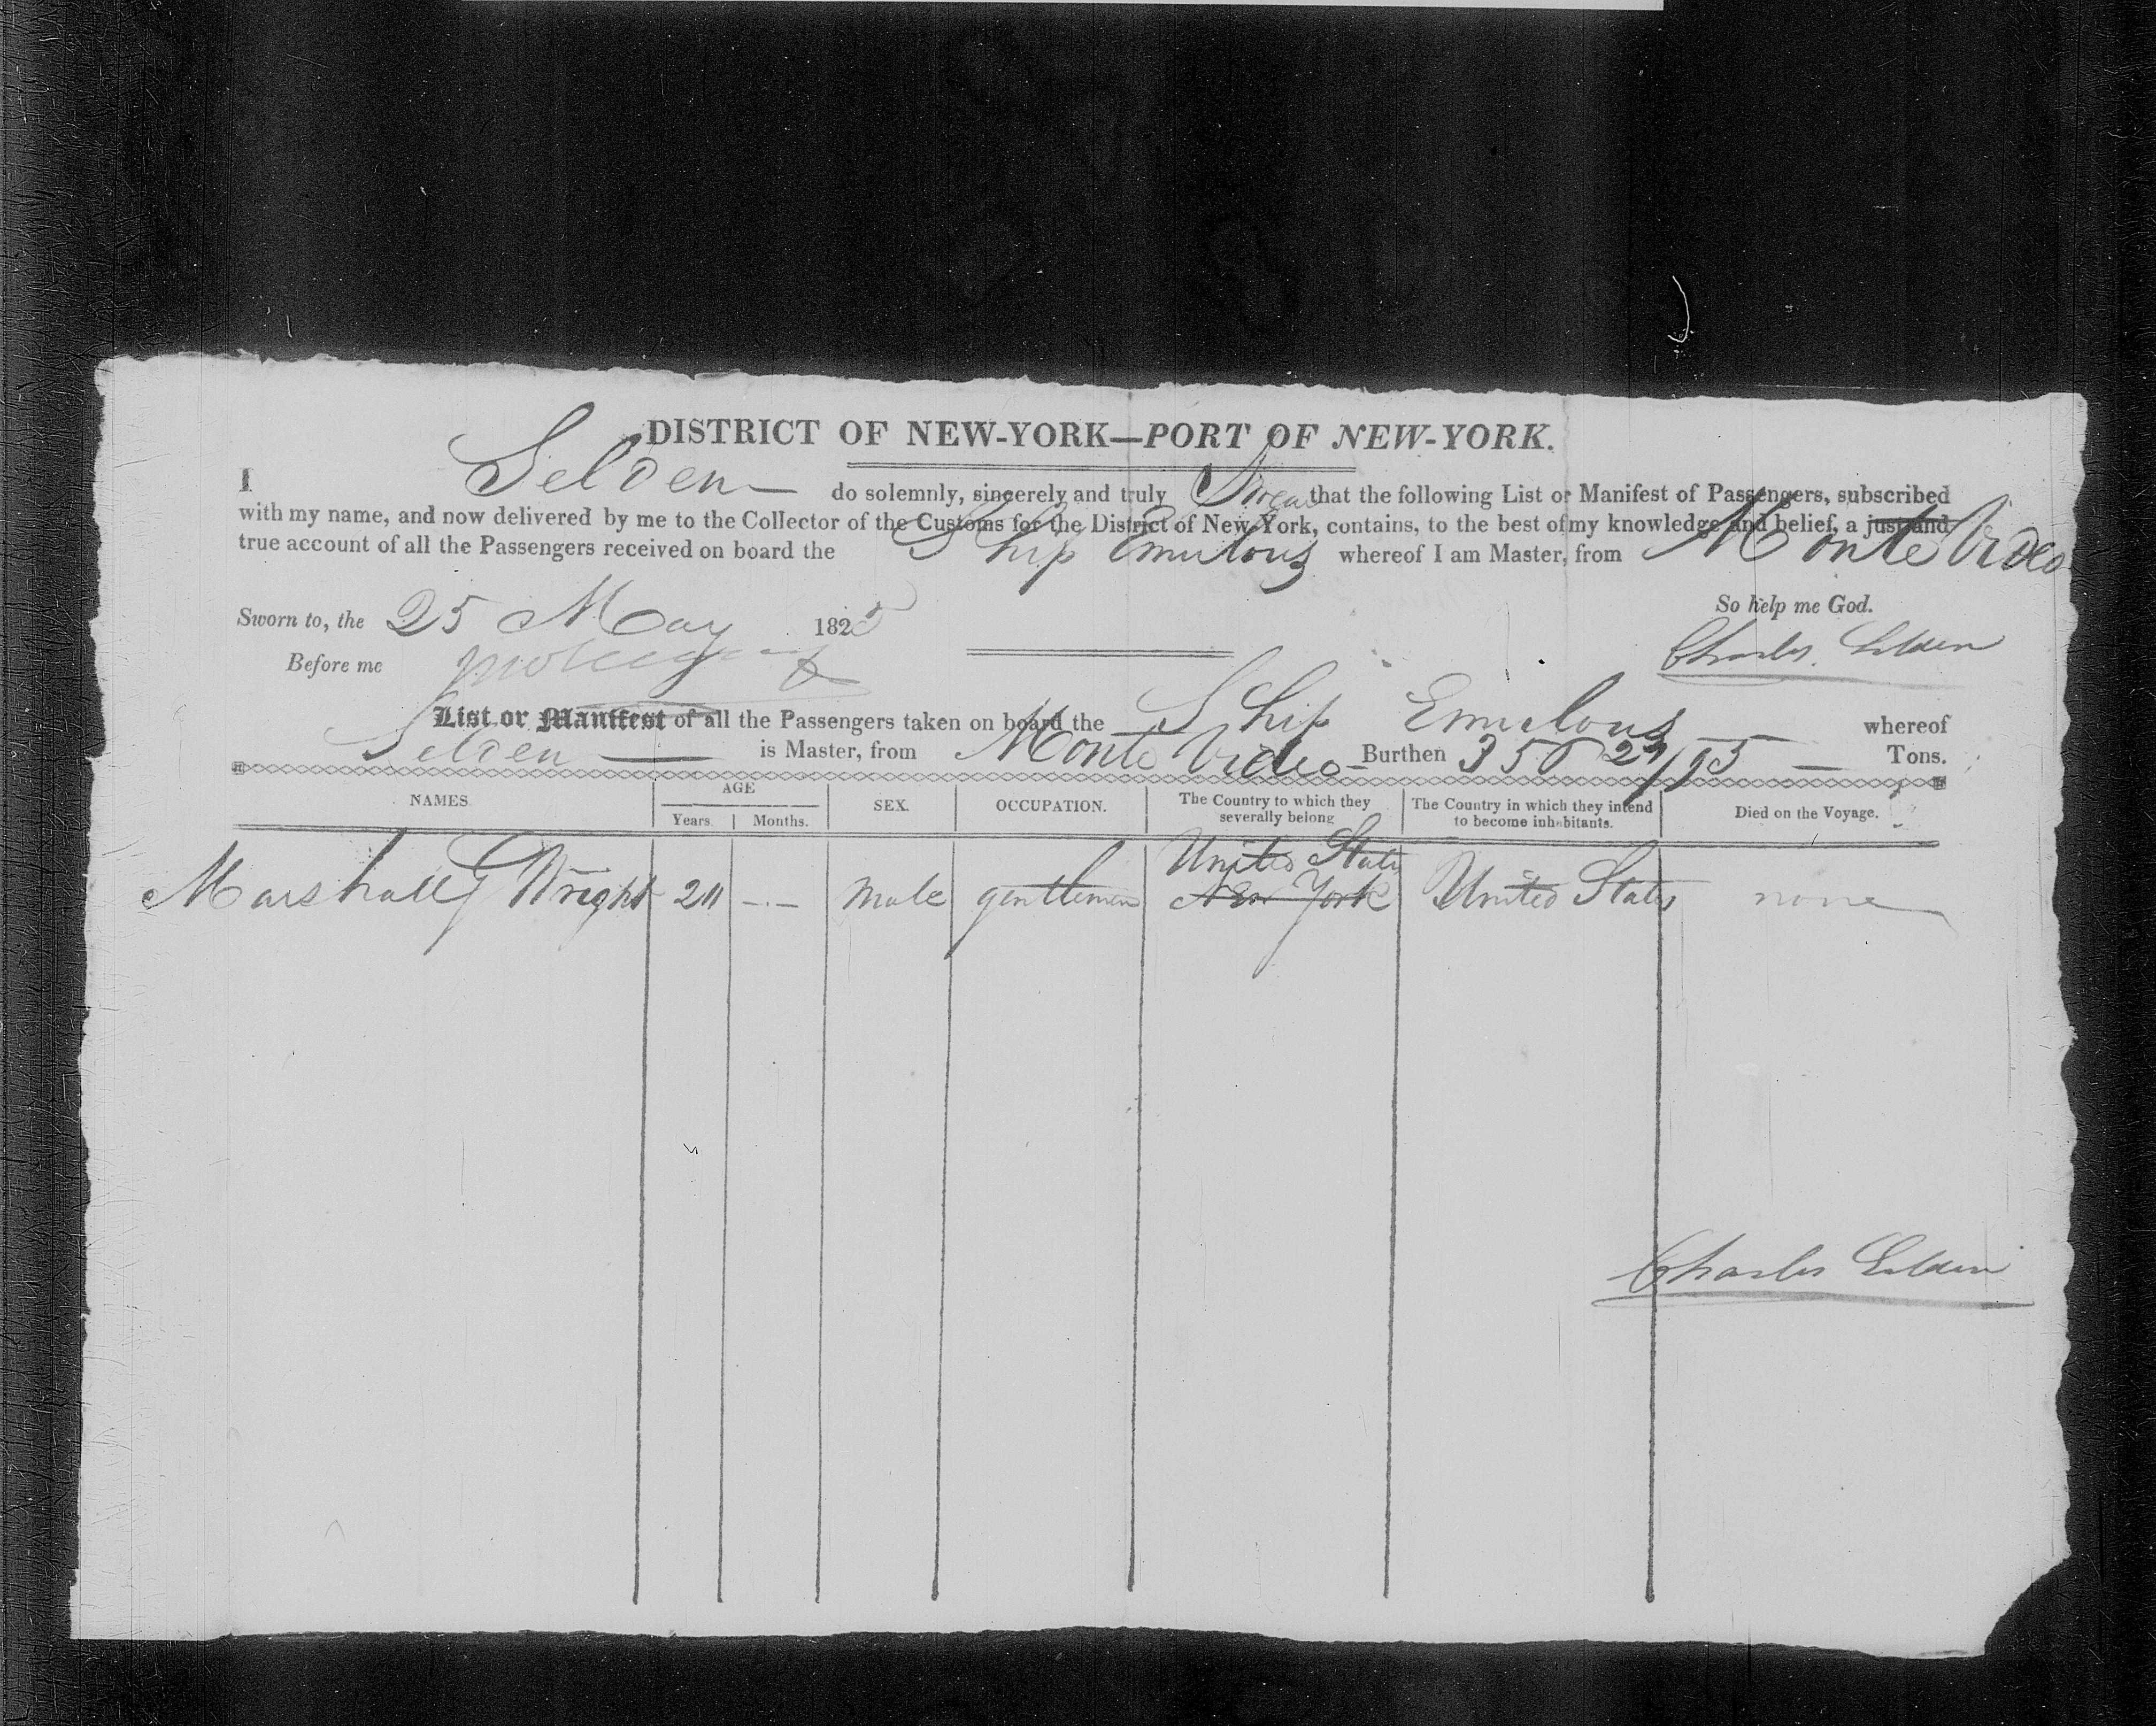 DISTRICT OF NEW-YORK—PORT OF NEW-YORK.
I Selden do solemnly, sincerely and truly Swear that the following List or Manifest of Passengers, subscribed
with my name, and now delivered by me to the Collector of the Customs for the District of New-York, contains, to the best of my knowledge and belief, a just and
true account of all the Passengers received on board the Ship Emulous whereof I am Master, from Monte Video
So help me God.
Sworn to, the 25 May 182
Charles Selden
Before me
List or Manifest of all the Passengers taken on board the Ship Emulous whereof
Selden is Master, from Monte Video Burthen Tons.
NAMES. AGE SEX. OCCUPATION. The Country to which they severally belong The Country in which they intend to become inhabitants. Died on the Voyage.
Years. Months.
United States
Marshall Wright male gentleman New York United States none
Charles Selden